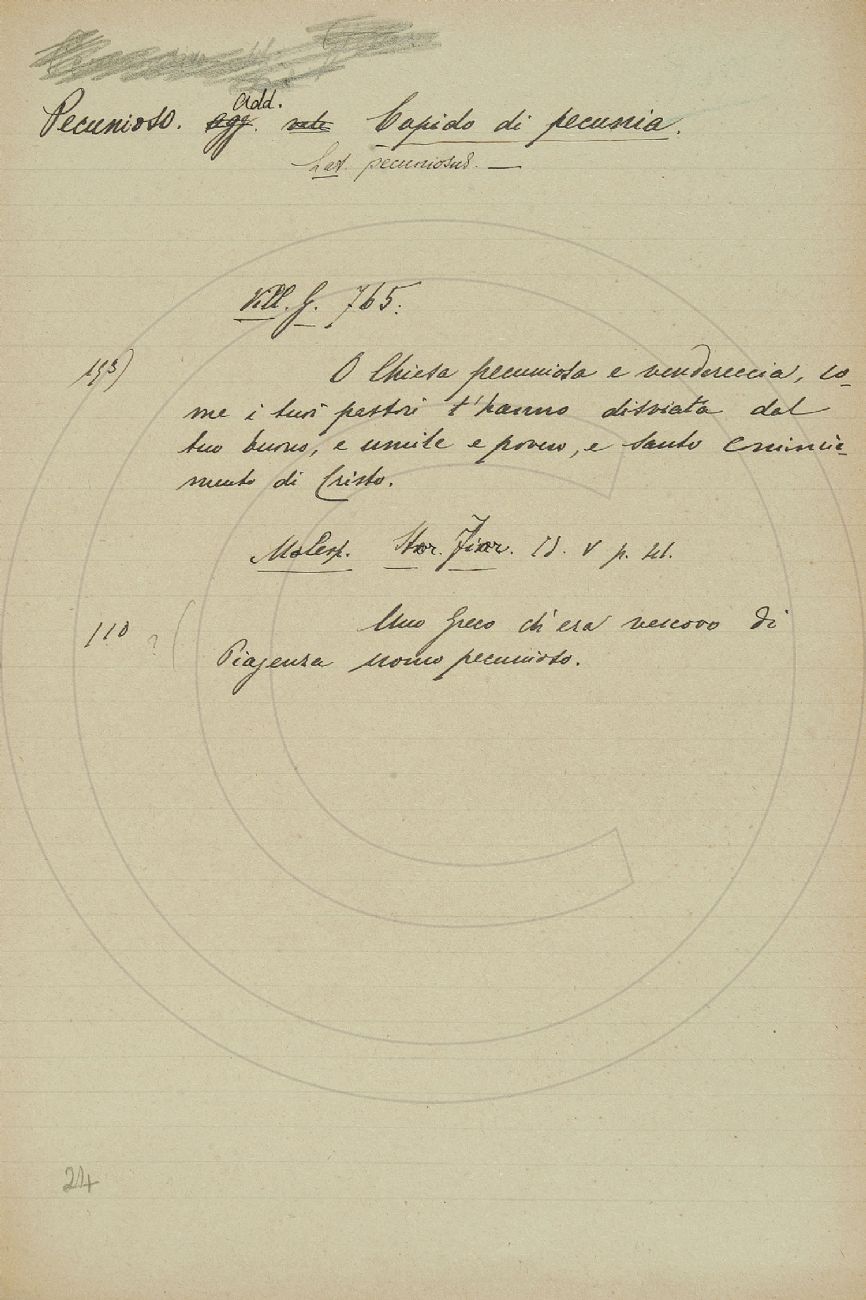 Pecunioso. agg. Add. vale Cupido di pecunia.
Lat. pecuniosus. —
Vill. G. 765:
193) O Chiesa pecuniosa e vendereccia, co-
me i tuoi pastori t'hanno disviata dal
tuo buono, e umile e povero, e santo comincia-
mento di Cristo.
Malesp. Stor. Fior. Id. V p. 41.
110 ? ( Uno Greco ch'era vescovo di
Piagenza uomo pecunioso.
24